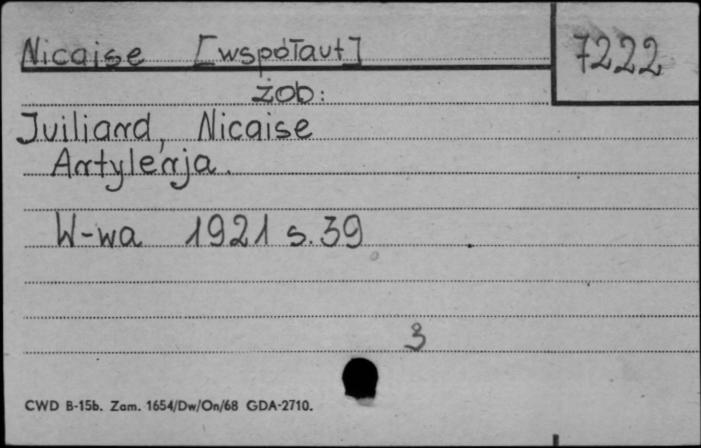 Nicaise [współaut]
7222
zob:
Juiliard, Nicaise
Artylerja.
W-wa 1921 s.39
3
CWD B-15b. Zam. 1654/Dw/On/68 GDA-2710.